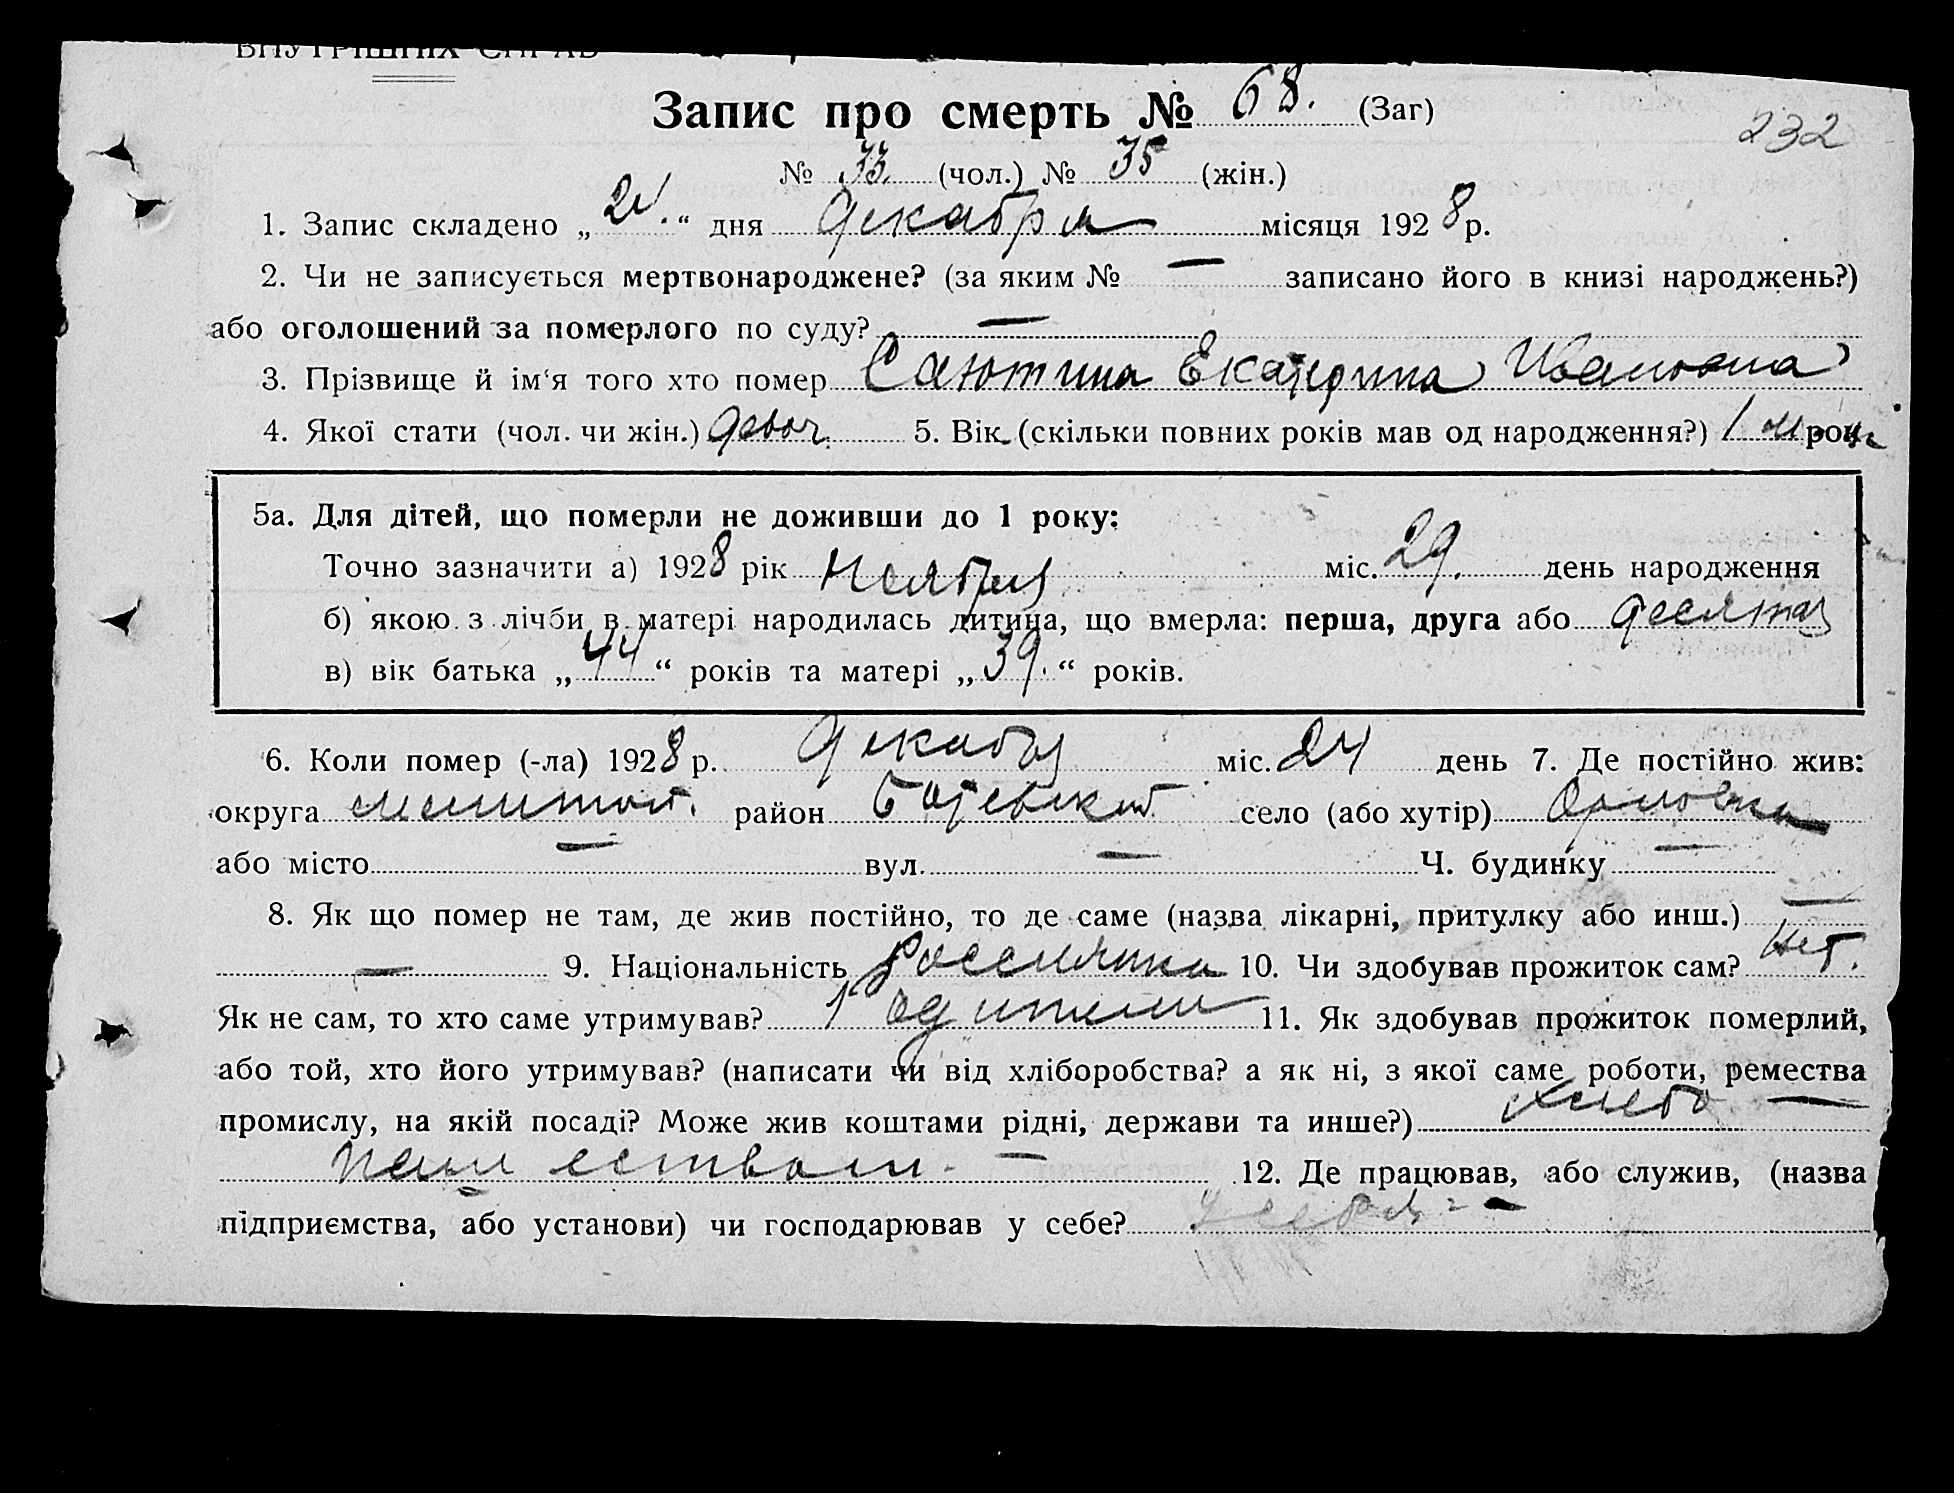 ВНУТРІШНИХ СПРАВ
Запис про смерть № 68. (Заг)
232
№ 33. (чол.) № 35 (жін.)
1. Запис складено „ 24. “ дня декабря місяця 1928 р.
2. Чи не записується мертвонароджене? (за яким № — записано його в книзі народжень?)
або оголошений за померлого по суду? —
3. Прізвище й ім‘я того хто помер Саютина Екатерина Ивановна
4. Якої стати (чол. чи жін.) девоч. 5. Вік (скільки повних років мав од народження?) 1 м років
5а. Для дітей, що померли не доживши до 1 року:
Точно зазначити а) 1928 рік Ноября міс. 29. день народження
б) якою з лічби в матері народилась дитина, що вмерла: перша, друга або десятая
в) вік батька „ 44 “ років та матері „ 39. “ років.
6. Коли помер (-ла) 1928 р. декабря міс. 24 день 7. Де постійно жив:
округа мелитоп. район Ботевский село (або хутір) Орловка
або місто — вул. — Ч. будинку —
8. Як що помер не там, де жив постійно, то де саме (назва лікарні, притулку або инш.) —
— 9. Національність россиянка 10. Чи здобував прожиток сам? нет.
Як не сам, то хто саме утримував? Родители 11. Як здобував прожиток померлий,
або той, хто його утримував? (написати чи від хліборобства? а як ні, з якої саме роботи, ремества
промислу, на якій посаді? Може жив коштами рідні, держави та инше?) хлебо —
пашеством. — 12. Де працював, або служив, (назва
підприємства, або установи) чи господарював у себе?